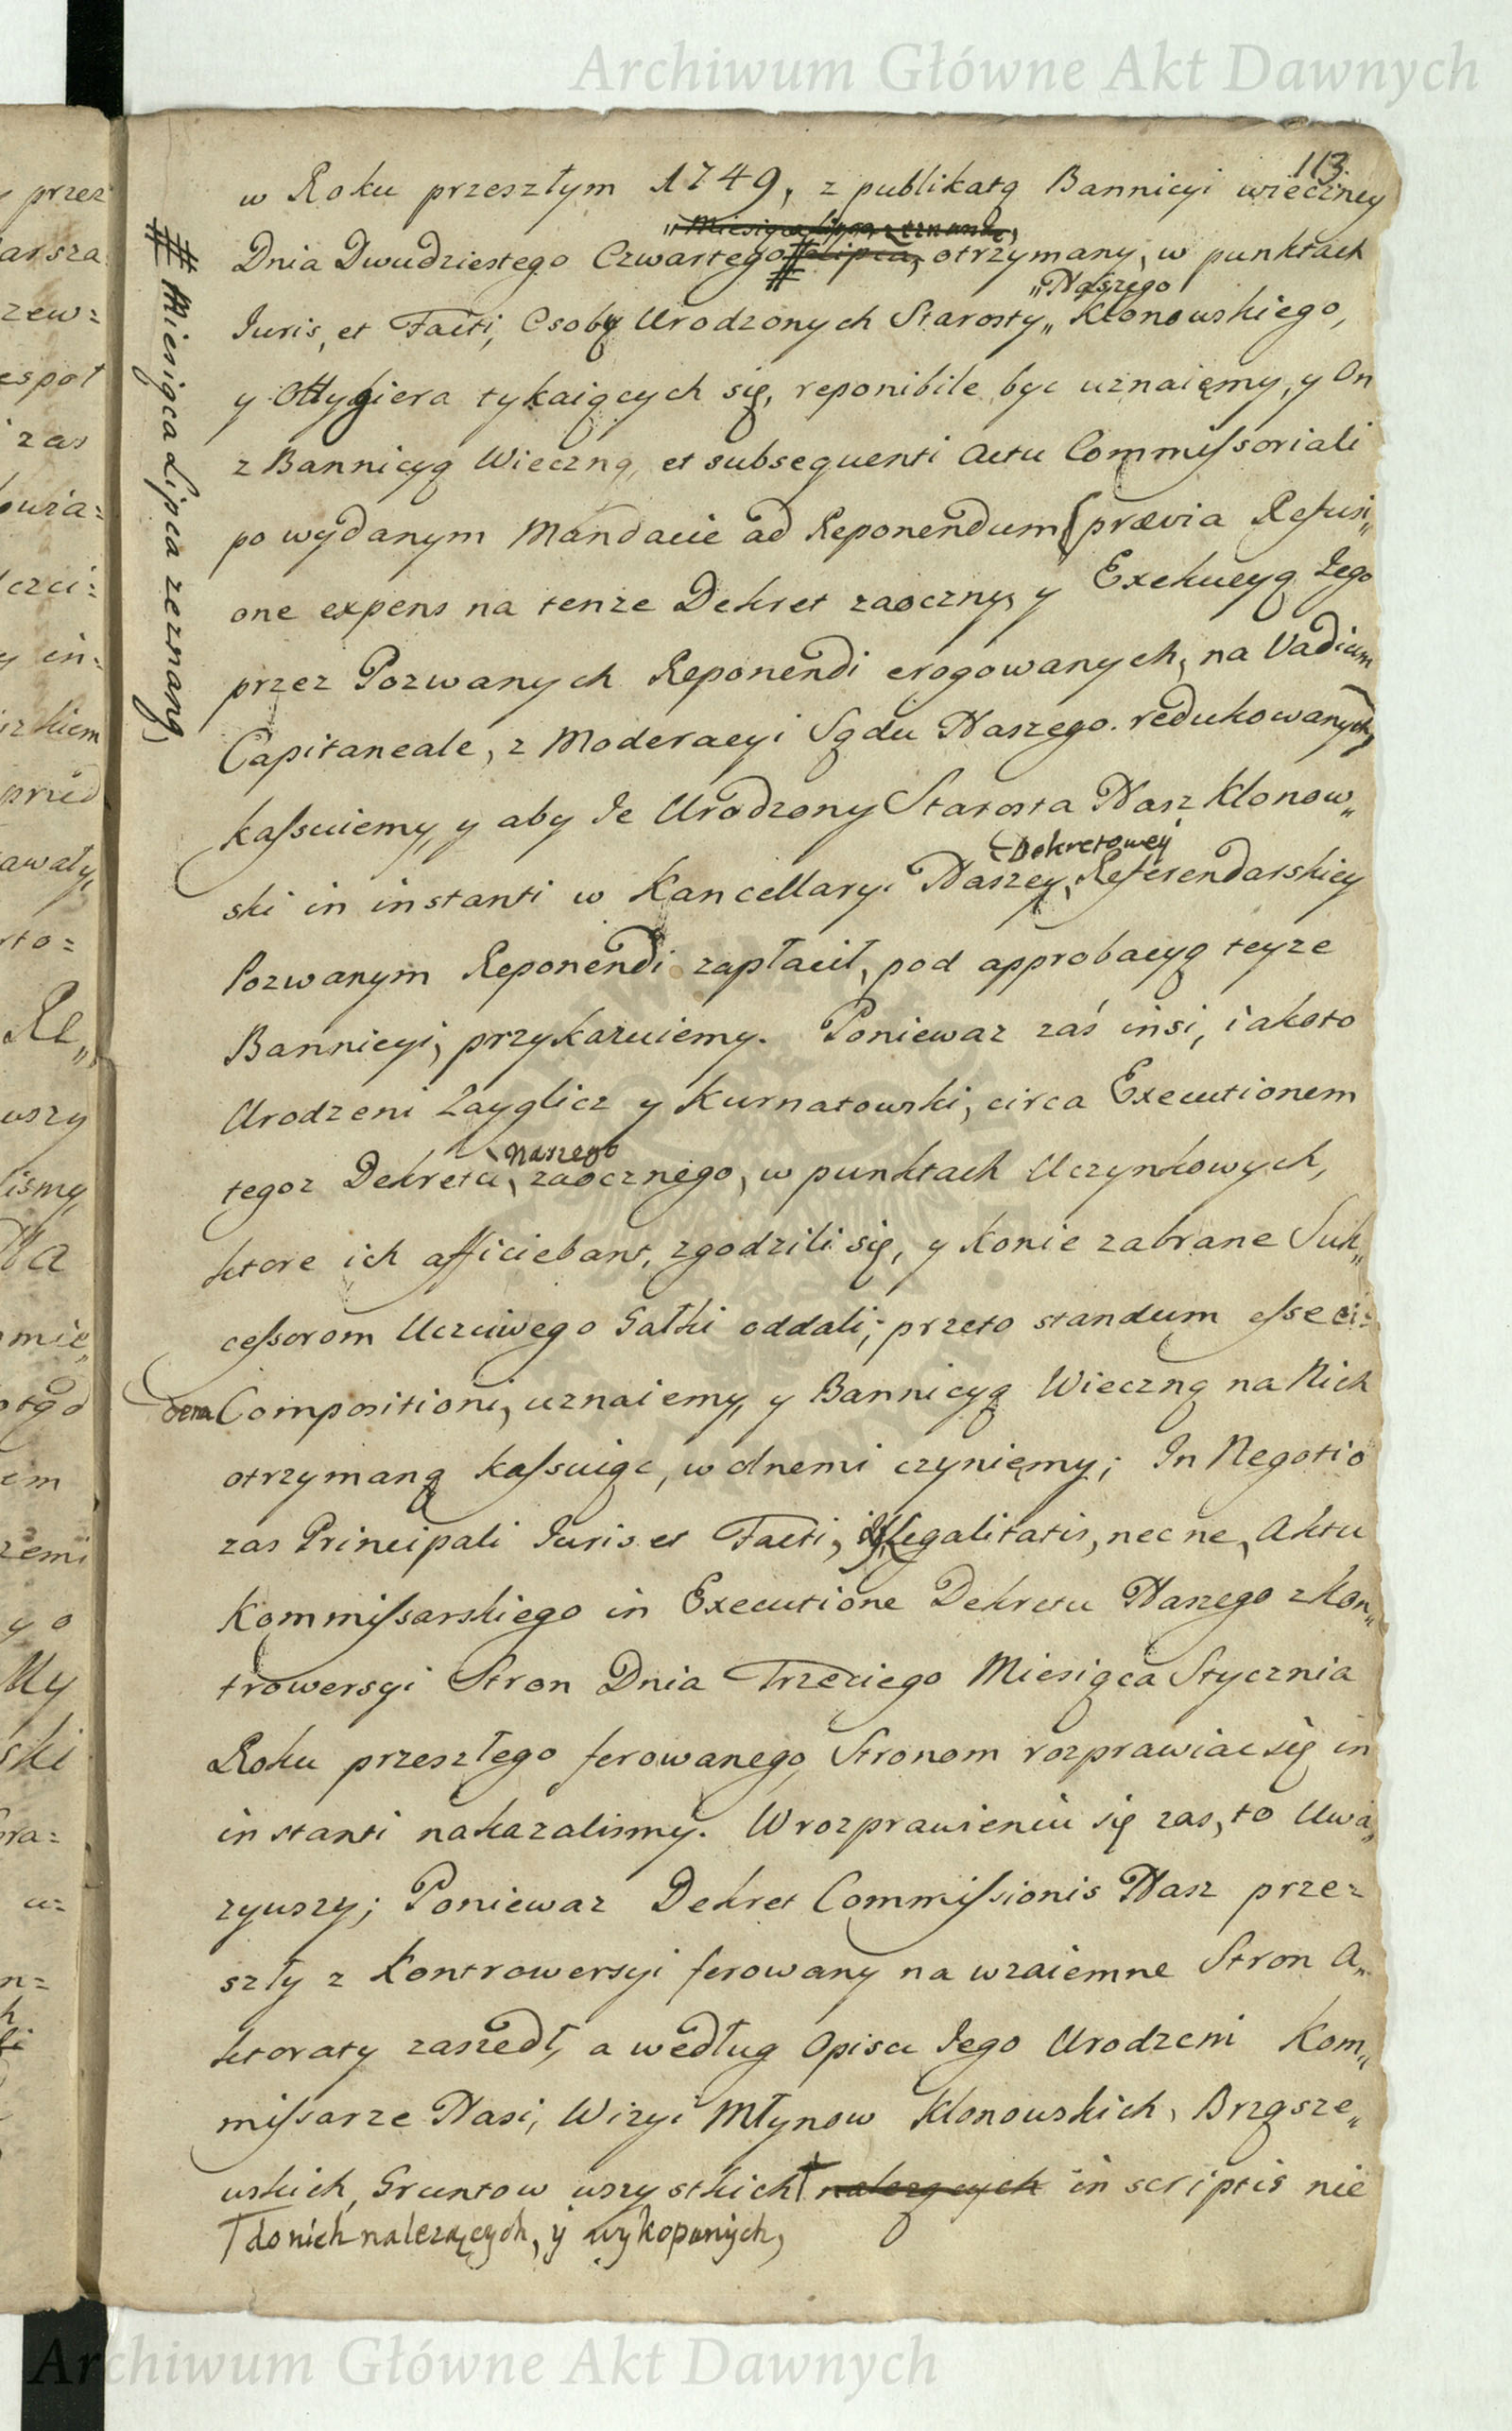 Archiwum Główne Akt Dawnych
113.
w Roku przeszłym 1749, z publikatą Bannicyi wieczney
„Miesiąca Lipca zeznaną,
Dnia Dwudziestego Czwartego # Lipca, otrzymany, w punktach
„Naszego
Iuris, et Facti, Osoby Urodzonych Starosty„ Klonowskiego,
y Ottygiera tykaiących się, reponibile byc uznaięmy, y On
z Bannicyą Wieczną, et subsequenti Actu Commissoriali
po wydanym Mandacie ad Reponendum (prævia Refusi„
one expens na tenze Dekret zaoczny, y Exekucyą Iego
przez Pozwanych Reponendi erogowanych, na Vadium
Capitaneale, z Moderacyi Sądu Naszego redukowanych,
kassuiemy, y aby Ie Urodzony Starosta Nasz Klonow„
Dekretowey
ski in instanti w Kancellaryi Naszey, Referendarskiey
Pozwanym Reponendi zapłacił, pod approbacyą teyze
Bannicyi, przykazuiemy. Poniewaz zaś insi, iakoto
Urodzeni Zayglicz y Kurnatowski, circa Executionem
Naszego
tegoz Dekretu, zaocznego, w punktach Uczynkowych,
ktore ich afficiebant, zgodzili się, y Konie zabrane Suk„
cessorom Uczciwego Gałki oddali; przeto standum esse ei:
dem Compositioni, uznaiemy, y Bannicyą Wieczną na Nich
otrzymaną kassuiąc, wolnemi czyniemy; In Negotio
zas Principali Iuris et Facti, legalitatis, nec ne, Aktu
Kommissarskiego in Executione Dekretu Naszego z Kon„
trowersyi Stron Dnia Trzeciego Miesiąca Stycznia
Roku przeszłego ferowanego, Stronom rozprawiac się in
instanti nakazalismy. W rozprawieniu się zas, to Uwa„
zywszy; Poniewaz Dekret Commissionis Nasz prze=
szły z Kontrowersyi ferowany na wzaiemne Stron A„
ktoraty zaszedł, a według Opisu Iego Urodzeni Kom„
missarze Nasi, Wizyi Młynow Klonowskich, Brząsze„
wskich, Gruntow wszystkich † nalezących in scriptis nie
† do nich nalezących, y wykopanych,
# Miesiąca Lipca zeznaną,
y przez
arsza
zew=
espoł
zas
czci=
y in=
iszkiem
przed
awały,
rto=
Re„
wszy
lismy,
Na
mie„
em
zemi
y o
My
ski
ra=
u=
n=
Archiwum Główne Akt Dawnych